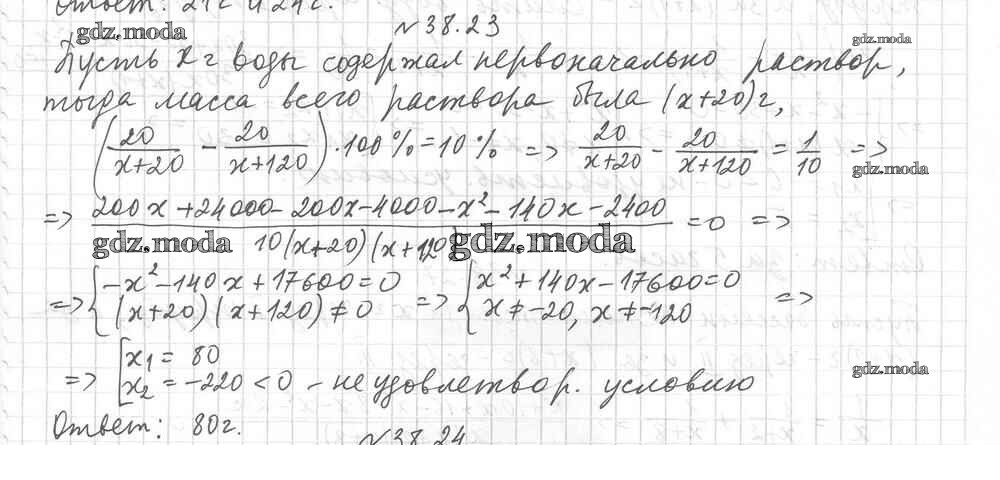 Ответ: 21г и 24г.
gdz.moda
№38.23
gdz.moda
Пусть x г воды содержал первоначально раствор,
тогда масса всего раствора была (x+20)г,
(20/(x+20) - 20/(x+120)) · 100% = 10% => 20/(x+20) - 20/(x+120) = 1/10 =>
gdz.moda
=> (200x + 24000 - 200x - 4000 - x² - 140x - 2400)/(10(x+20)(x+120)) = 0 =>
gdz.moda gdz.moda
=> { -x² - 140x + 17600 = 0 => { x² + 140x - 17600 = 0 =>
(x+20)(x+120) ≠ 0 x ≠ -20, x ≠ -120
=> [ x₁ = 80
gdz.moda
x₂ = -220 < 0 - не удовлетвор. условию
Ответ: 80г.
№38.24